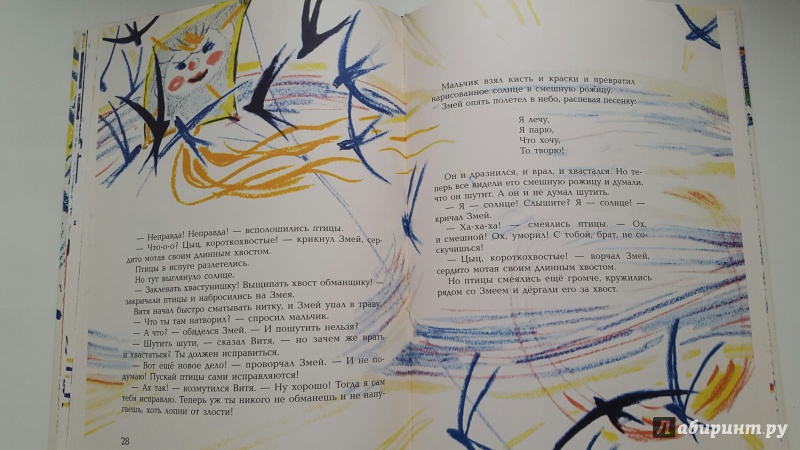 — Неправда! Неправда! — всполошились птицы.
— Что-о-о? Цыц, короткохвостые! — крикнул Змей, сер-
дито мотая своим длинным хвостом.
Птицы в испуге разлетелись.
Но тут выглянуло солнце.
— Заклевать хвастунишку! Выщипать хвост обманщику! —
закричали птицы и набросились на Змея.
Витя начал быстро сматывать нитку, и Змей упал в траву.
— Что ты там натворил? — спросил мальчик.
— А что? — обиделся Змей. — И пошутить нельзя?
— Шутить шути, — сказал Витя, — но зачем же врать
и хвастаться? Ты должен исправиться.
— Вот ещё новое дело! — проворчал Змей. — И не по-
думаю! Пускай птицы сами исправляются!
— Ах так! — возмутился Витя. — Ну хорошо! Тогда я сам
тебя исправлю. Теперь уж ты никого не обманешь и не напу-
гаешь, хоть лопни от злости!
28
Мальчик взял кисть и краски и превратил
нарисованное солнце в смешную рожицу.
Змей опять полетел в небо, распевая песенку:
Я лечу,
Я парю,
Что хочу,
То творю!
Он и дразнился, и врал, и хвастался. Но те-
перь все видели его смешную рожицу и думали,
что он шутит. А он и не думал шутить.
— Я — солнце! Слышите? Я — солнце! —
кричал Змей.
— Ха-ха-ха! — смеялись птицы. — Ох,
и смешной! Ох, уморил! С тобой, брат, не со-
скучишься!
— Цыц, короткохвостые! — ворчал Змей,
сердито мотая своим длинным хвостом.
Но птицы смеялись ещё громче, кружились
рядом со Змеем и дёргали его за хвост.
Лабиринт.ру